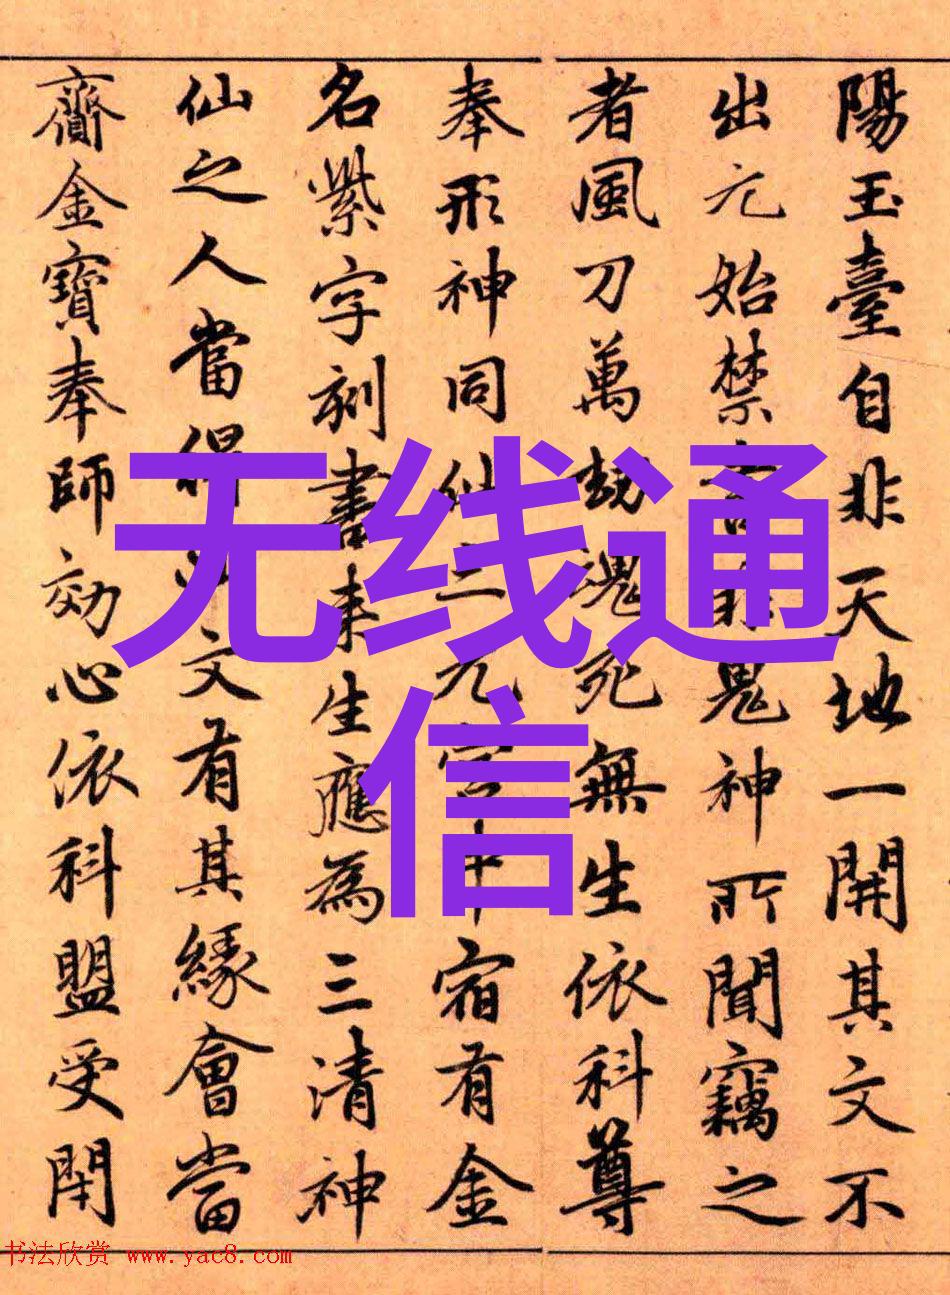 陽玉臺自非天地一開其文不
出元始禁書非鬼神所聞竊之
者風刀萬劫魂死無生依科尊
奉形神同仙三元宮中宿有金
名紫字刻書來生應為三清神
仙之人當得此文有其緣會當
齎金寶奉師効心依科盟受閇
无线通
信
书法欣赏 www.yac8.com